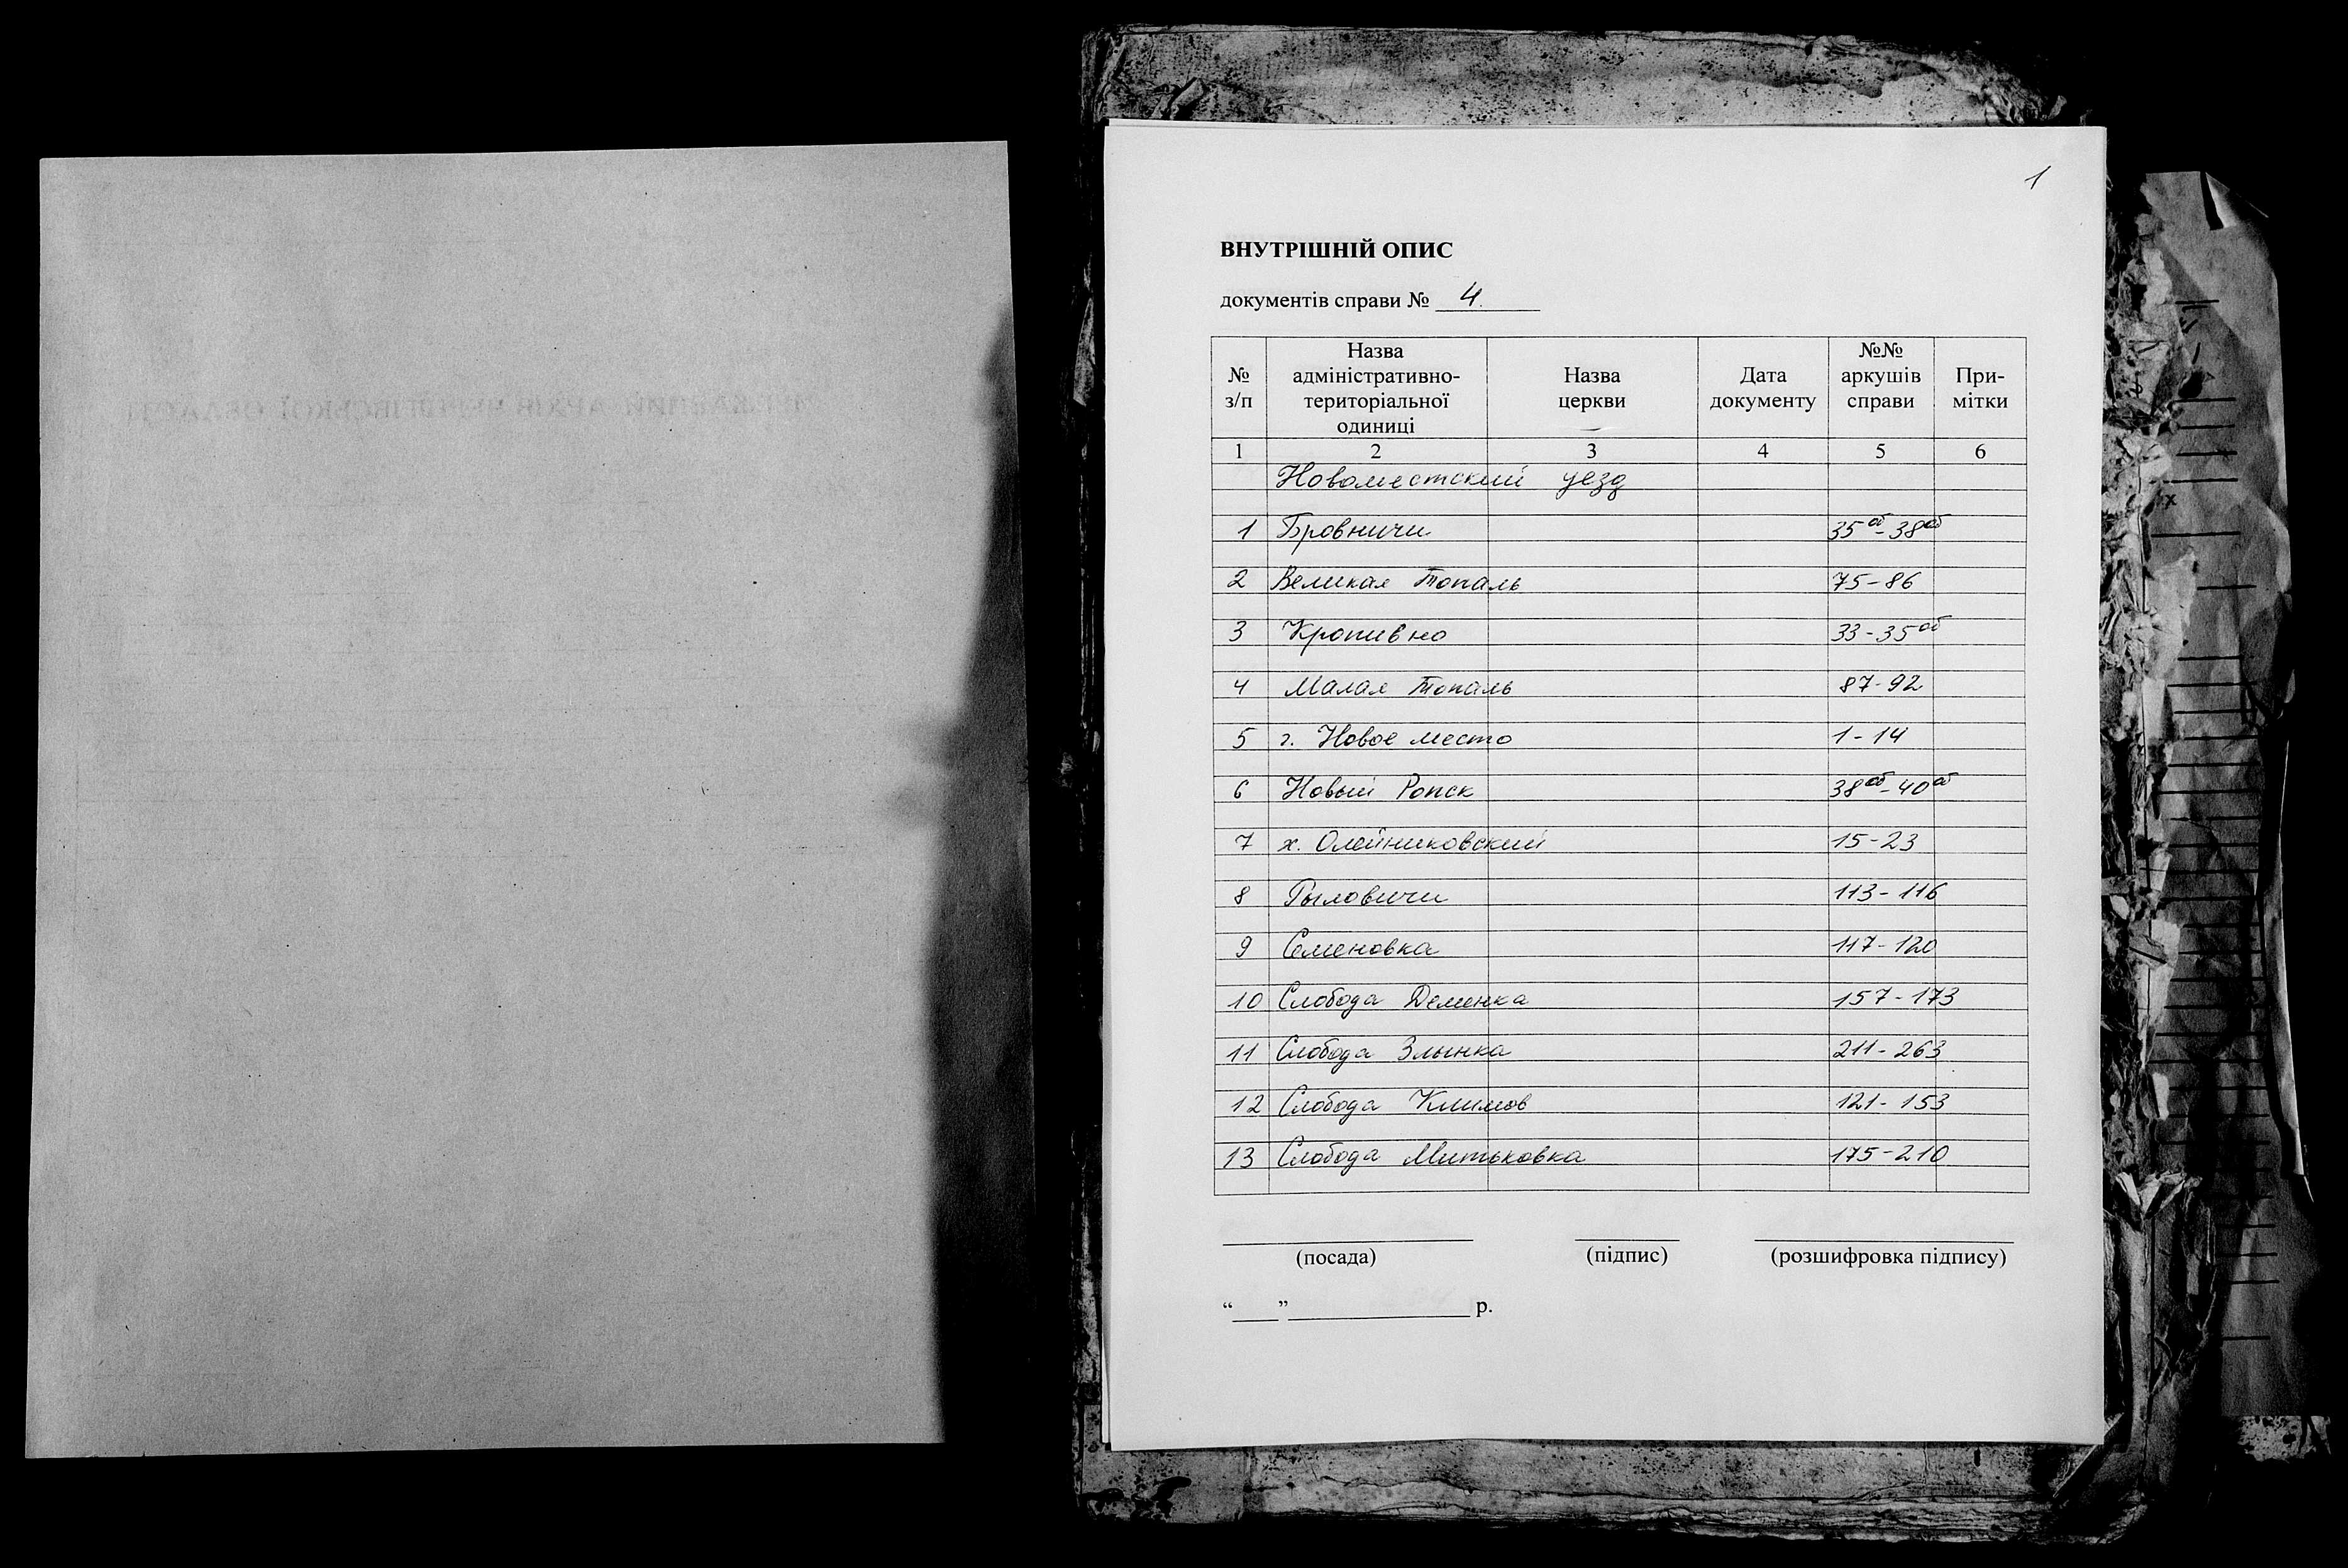 1
ВНУТРІШНІЙ ОПИС
документів справи № 4.
№ з/п | Назва адміністративно-територіальної одиниці | Назва церкви | Дата документу | №№ аркушів справи | При-мітки
1 2 3 4 5 6
Новоместский уезд
1 Бровничи 35об-38об
2 Великая Топаль 75-86
3 Кропивно 33-35об
4 Малая Топаль 87-92
5 г. Новое место 1-14
6 Новый Ропск 38об-40об
7 х. Олейниковский 15-23
8 Рыловичи 113-116
9 Семеновка 117-120
10 Слобода Деменка 157-173
11 Слобода Злынка 211-263
12 Слобода Климов 121-153
13 Слобода Митьковка 175-210
(посада) (підпис) (розшифровка підпису)
“___” ______________ р.